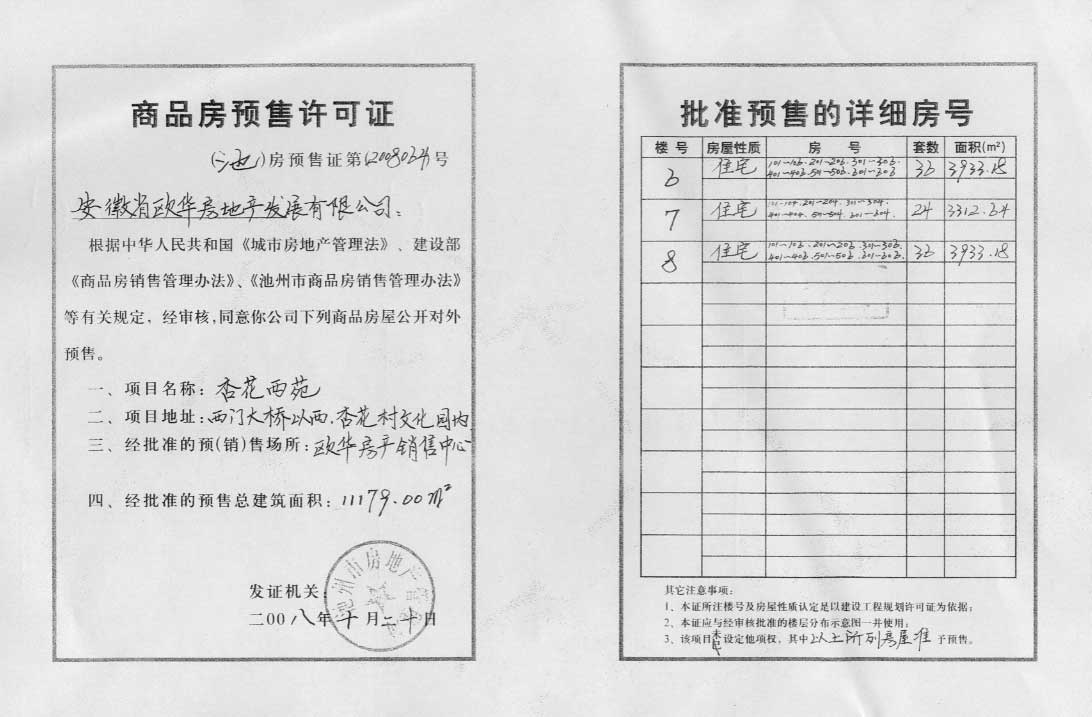 商品房预售许可证
(池)房预售证第(2008034)号
安徽省欧华房地产发展有限公司：
根据中华人民共和国《城市房地产管理法》、建设部
《商品房销售管理办法》、《池州市商品房销售管理办法》
等有关规定，经审核，同意你公司下列商品房屋公开对外
预售。
一、项目名称：杏花西苑
二、项目地址：西门大桥以西.杏花村文化园内
三、经批准的预(销)售场所：欧华房产销售中心
四、经批准的预售总建筑面积：11179.00m²
发证机关：
二00八年十月二十日
池州市房地产管
批准预售的详细房号
楼号 房屋性质 房号 套数 面积(m²)
6 住宅 101~106.201~206.301~306.
401~406.501~506.601~606 36 3933.18
7 住宅 101~104.201~204.301~304.
401~404.501~504.601~604. 24 3312.64
8 住宅 101~106.201~206.301~306.
401~406.501~506.601~606. 36 3933.18
其它注意事项：
1、本证所注楼号及房屋性质认定是以建设工程规划许可证为依据；
2、本证应与经审核批准的楼层分布示意图一并使用；
3、该项目未设定他项权，其中以上所列房屋准予预售。